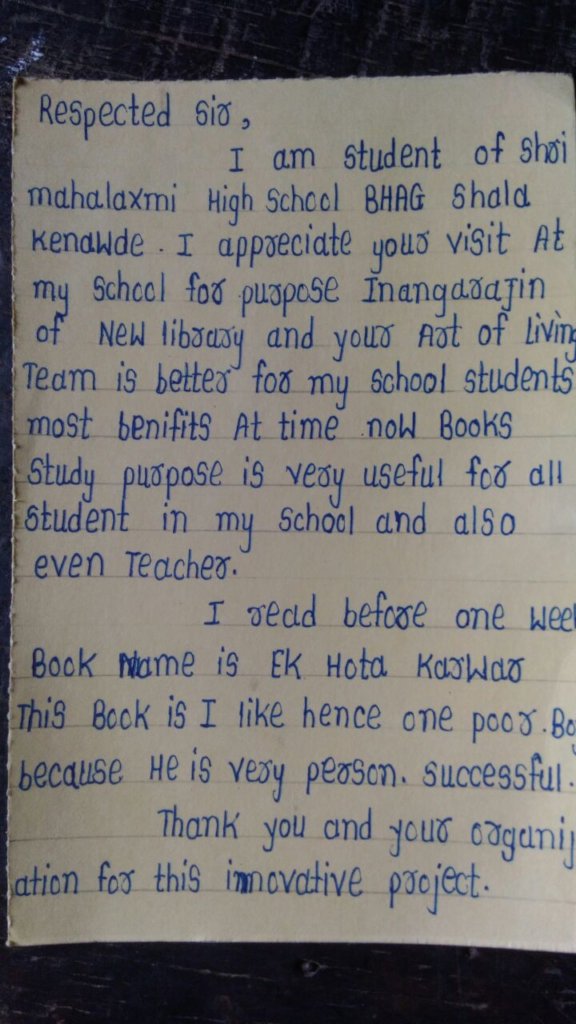 Respected sir,
I am student of shri
mahalaxmi High School BHAG Shala
Kenawde . I appreciate your visit At
my school for purpose Inangarajin
of New library and your Art of Living
Team is better for my school students
most benifits At time now Books
Study purpose is very useful for all
student in my school and also
even Teacher.
I read before one week
Book Name is EK Hota Karwar
This Book is I like hence one poor . Bo
because He is very person. successful.
Thank you and your organij
ation for this innovative project.